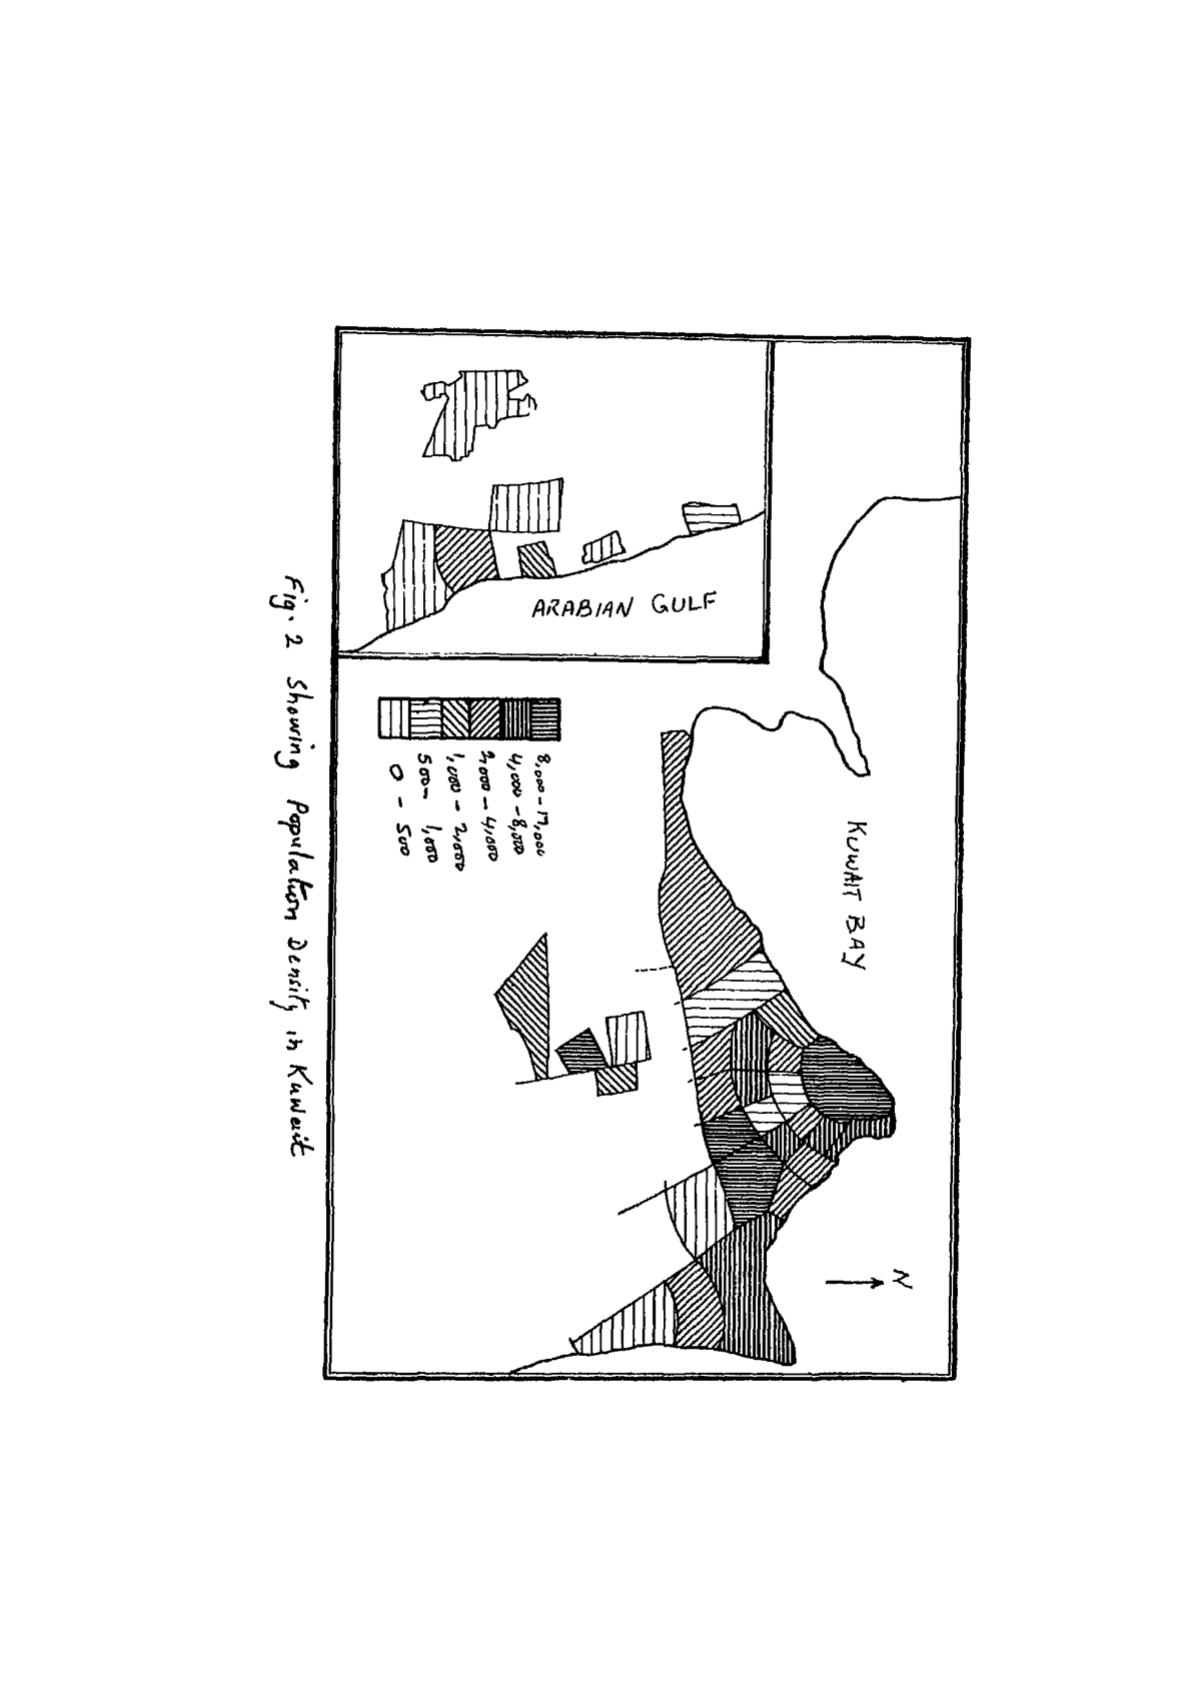 KUWAIT BAY
N
ARABIAN GULF
8,000 - 17,000
4,000 - 8,000
2,000 - 4,000
1,000 - 2,000
500 - 1,000
0 - 500
Fig. 2 Showing Population Density in Kuwait